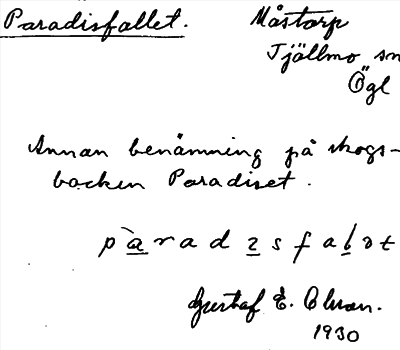 Paradisfallet.
Måstorp
Tjällmo sn
Ögl
Annan benämning på skogs-
backen Paradiset.
Gustaf E.
1930